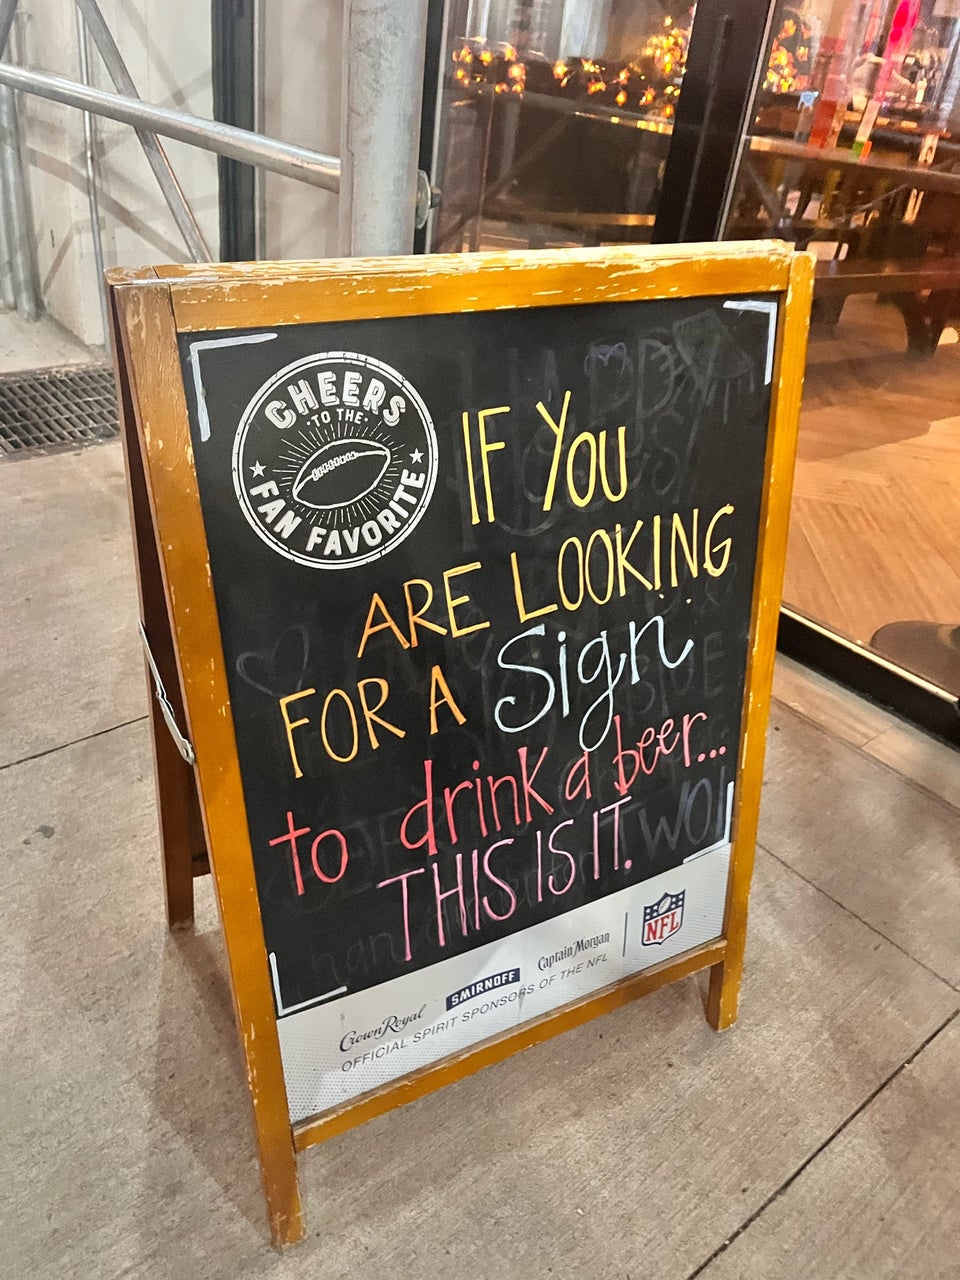 CHEERS
·TO THE·
FAN FAVORITE
IF YOU
ARE LOOKING
FOR A Sign
to drink a beer...
THIS IS IT.
TWO!
Crown Royal
SMIRNOFF
Captain Morgan
OFFICIAL SPIRIT SPONSORS OF THE NFL
NFL